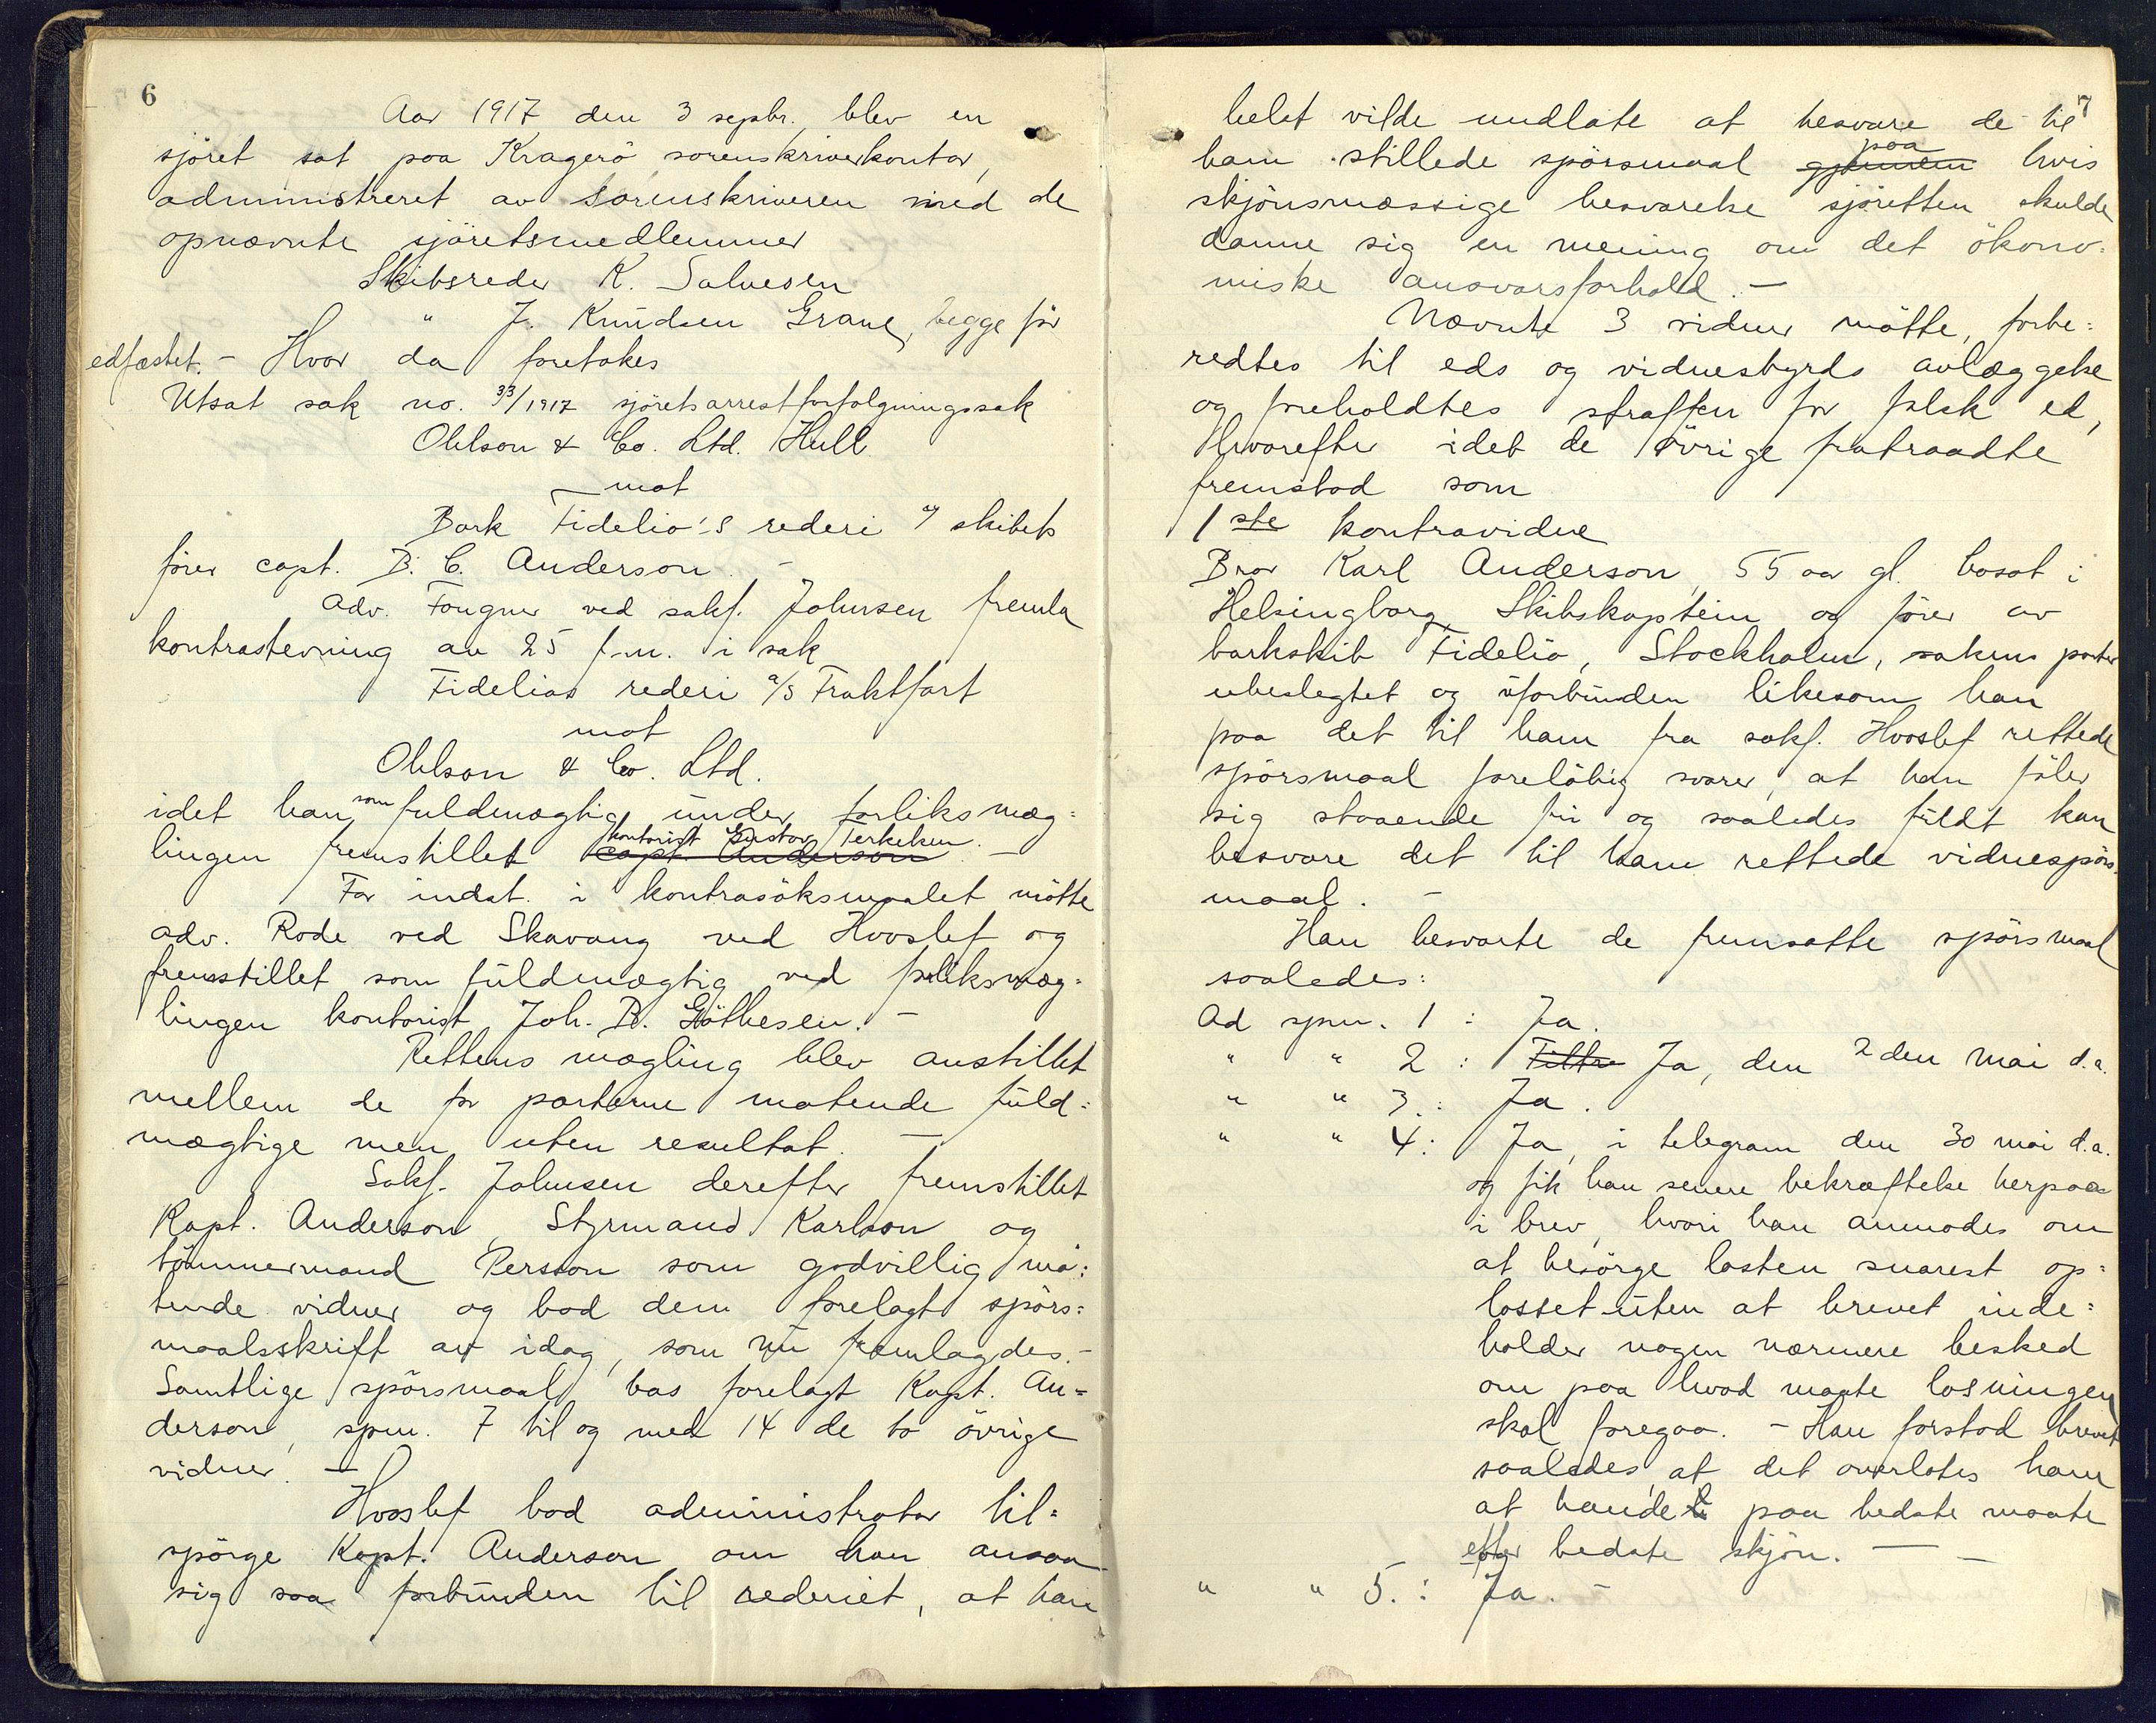 6
Aar 1917 den 3 sepbr. blev en
sjöret sat paa Kragerö sorenskriverkontor,
administreret av sorenskriveren med de
opnævnte sjöretsmedlemmer
Skibsreder K. Salvesen
" J. Knudsen Grane, begge før
edfæstet. - Hvor da foretokes
Utsat sak no. 33/1917 sjöretsarrestforfølgningssak
Ohlson & Co. Ltd. Hull
mot
Bark Fidelio's rederi og skibets
fører capt. B. C. Anderson. -
Adv. Fougner ved sakf. Johnsen fremla
kontrastevning av 25 f.m. i sak
Fidelios rederi a/s Fraktfart
mot
Ohlson & Co. Ltd.
idet han som fuldmægtig under forliksmæg=
lingen fremstillet capt. Anderson kontorist Gustav Terkelsen. -
For indst. i kontrasöksmaalet mötte
adv. Rode ved Skavang ved Hvoslef og
fremstillet som fuldmægtig ved forliksmæg=
lingen kontorist Joh. B. Göthesen. -
Rettens mægling blev anstillet
mellem de for parterne møtende fuld=
mægtige men uten resultat. -
Sakf. Johnsen derefter fremstillet
Kapt. Anderson, Styrmand Karlson og
tömmermand Persson som godvillig mö=
tende vidner og bad dem forelagt spörs=
maalsskrift av idag, som nu fremlagdes. -
Samtlige spörsmaal bas forelagt Kapt. An=
derson, spm. 7 til og med 14 de to övrige
vidner. -
Hvoslef bad administrator til=
spörge Kapt. Anderson om han ansaa
sig saa forbunden til rederiet, at han
7
helst vilde undlate at besvare de til
ham stillede spörsmaal gjennem paa hvis
skjönsmæssige besvarelse sjöretten skulde
danne sig en mening om det ökono=
miske ansvarsforhold. -
Nævnte 3 vidner mötte, forbe=
redtes til eds og vidnesbyrds avlæggelse
og foreholdtes straffen for falsk ed,
hvorefter idet de övrige fratraadte
fremstod som
1ste kontravidne
Bror Karl Anderson, 55 aar gl. bosat i
Helsingborg, Skibskaptein og förer av
barkskib Fidelio, Stockholm, sakens parter
ubeslegtet og uforbunden likesom han
paa det til ham fra sakf. Hvoslef rettede
spörsmaal foreløbig svarer, at han föler
sig staaende fri og saaledes fuldt kan
besvare det til ham rettede vidnespörs=
maal. -
Han besvarte de fremsatte spörsmaal
saaledes:
Ad spm. 1 : Ja.
" " 2 : Ja, den 2den mai d.a.
" " 3. : Ja.
" " 4 : Ja, i telegram den 30 mai d.a.
og fik han senere bekræftelse herpaa
i brev, hvori han anmodes om
at besörge lasten snarest op=
losset uten at brevet inde=
holder nogen nærmere besked
om paa hvad maate losningen
skal foregaa. - Han forstod brevet
saaledes, at det overlotes ham
at handle paa bedste maate
efter bedste skjön. -
" " 5. : Ja. -